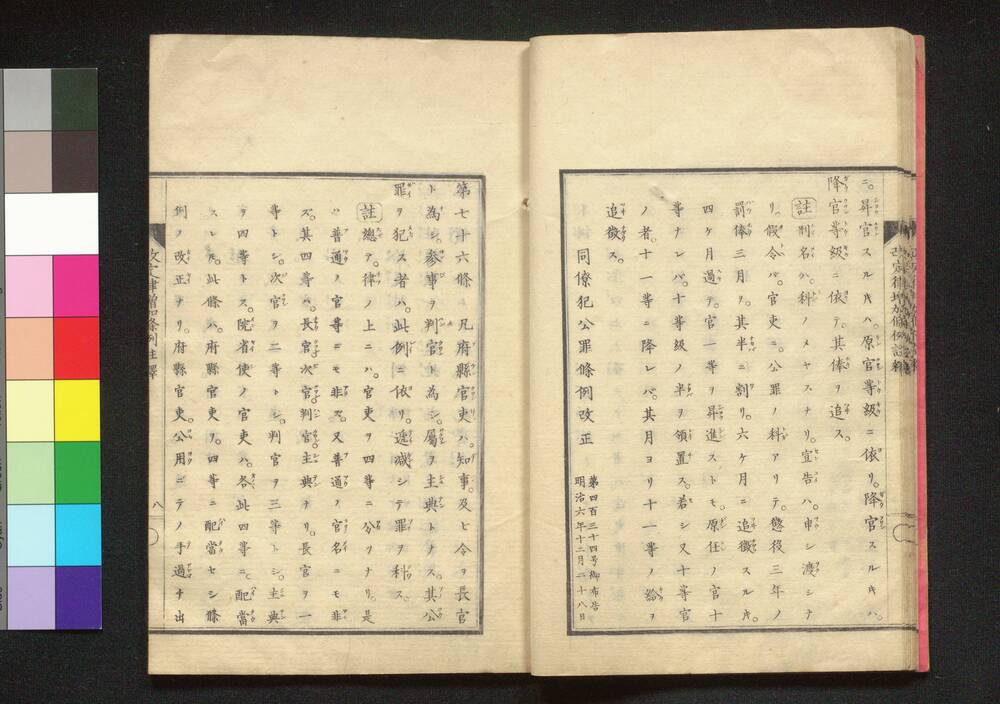 ニ。昇官スル片ハ。原官等級ニ依リ。降官スル片ハ。
降官等級ニ依テ。其俸ヲ追ス。
註 刑名ハ。科ノメヤスナリ。宣告ハ。申シ渡シナ
リ。假令ハ。官吏ニ。公罪ノ科アリテ。懲役三年ノ
罰俸三月ヲ。其半ニ割リ。六ケ月ニ追徴スル片。
四ケ月過テ。官一等ヲ昇進ストモ。原任ノ官十
等ナレバ。十等級ノ半ヲ領置ス。若シ又十等官
ノ者。十一等ニ降レバ。其月ヨリ十一等ノ給ヲ
追徴ス。
同僚犯公罪條例改正
第四百三十四号御布告
明治六年十二月二十八日
改定律増加條例註釋
第七十六條 凡府縣官吏ハ。知事。及ヒ令ヲ長官
ト為シ。參事ヲ判官ト為シ。屬ヲ主典トナス。其公
罪ヲ犯ス者ハ。此例ニ依リ。遞减シテ罪ヲ科ス。
註 總テ律ノ上ニハ。官吏ヲ四等ニ分ツナリ。是
ハ普通ノ官等ニモ非ス。又普通ノ官名ニモ非
ズ。其四等ハ。長官次官。判官。主典ナリ。長官ヲ一
等トシ。次官ヲ二等トシ。判官ヲ三等トシ。主典
ヲ四等トス。院省使ノ官吏ハ。各此四等ニ。配當
スレ圧。此條ハ。府縣官吏ヲ。四等ニ配當セシ條
例ノ改正ナリ。府縣官吏。公用ニテノ手過チ出
改定律増加條例註釋
八